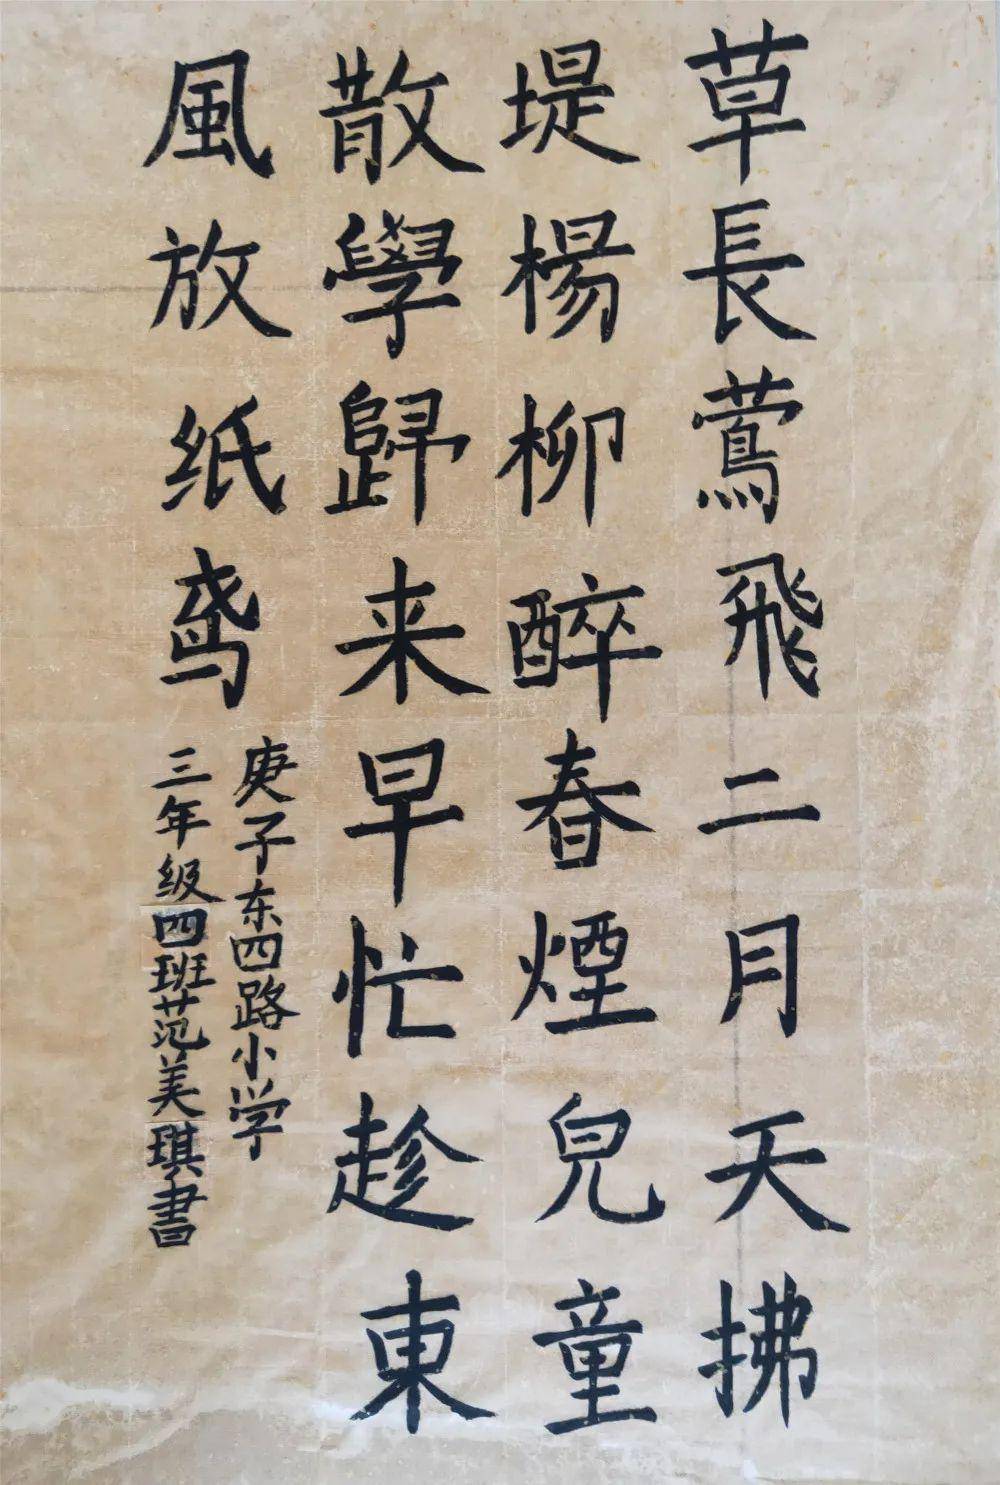 草長鶯飛二月天拂
堤楊柳醉春煙兒童
散學歸来早忙趁東
風放纸鸢
庚子东四路小学
三年级四班范美琪書